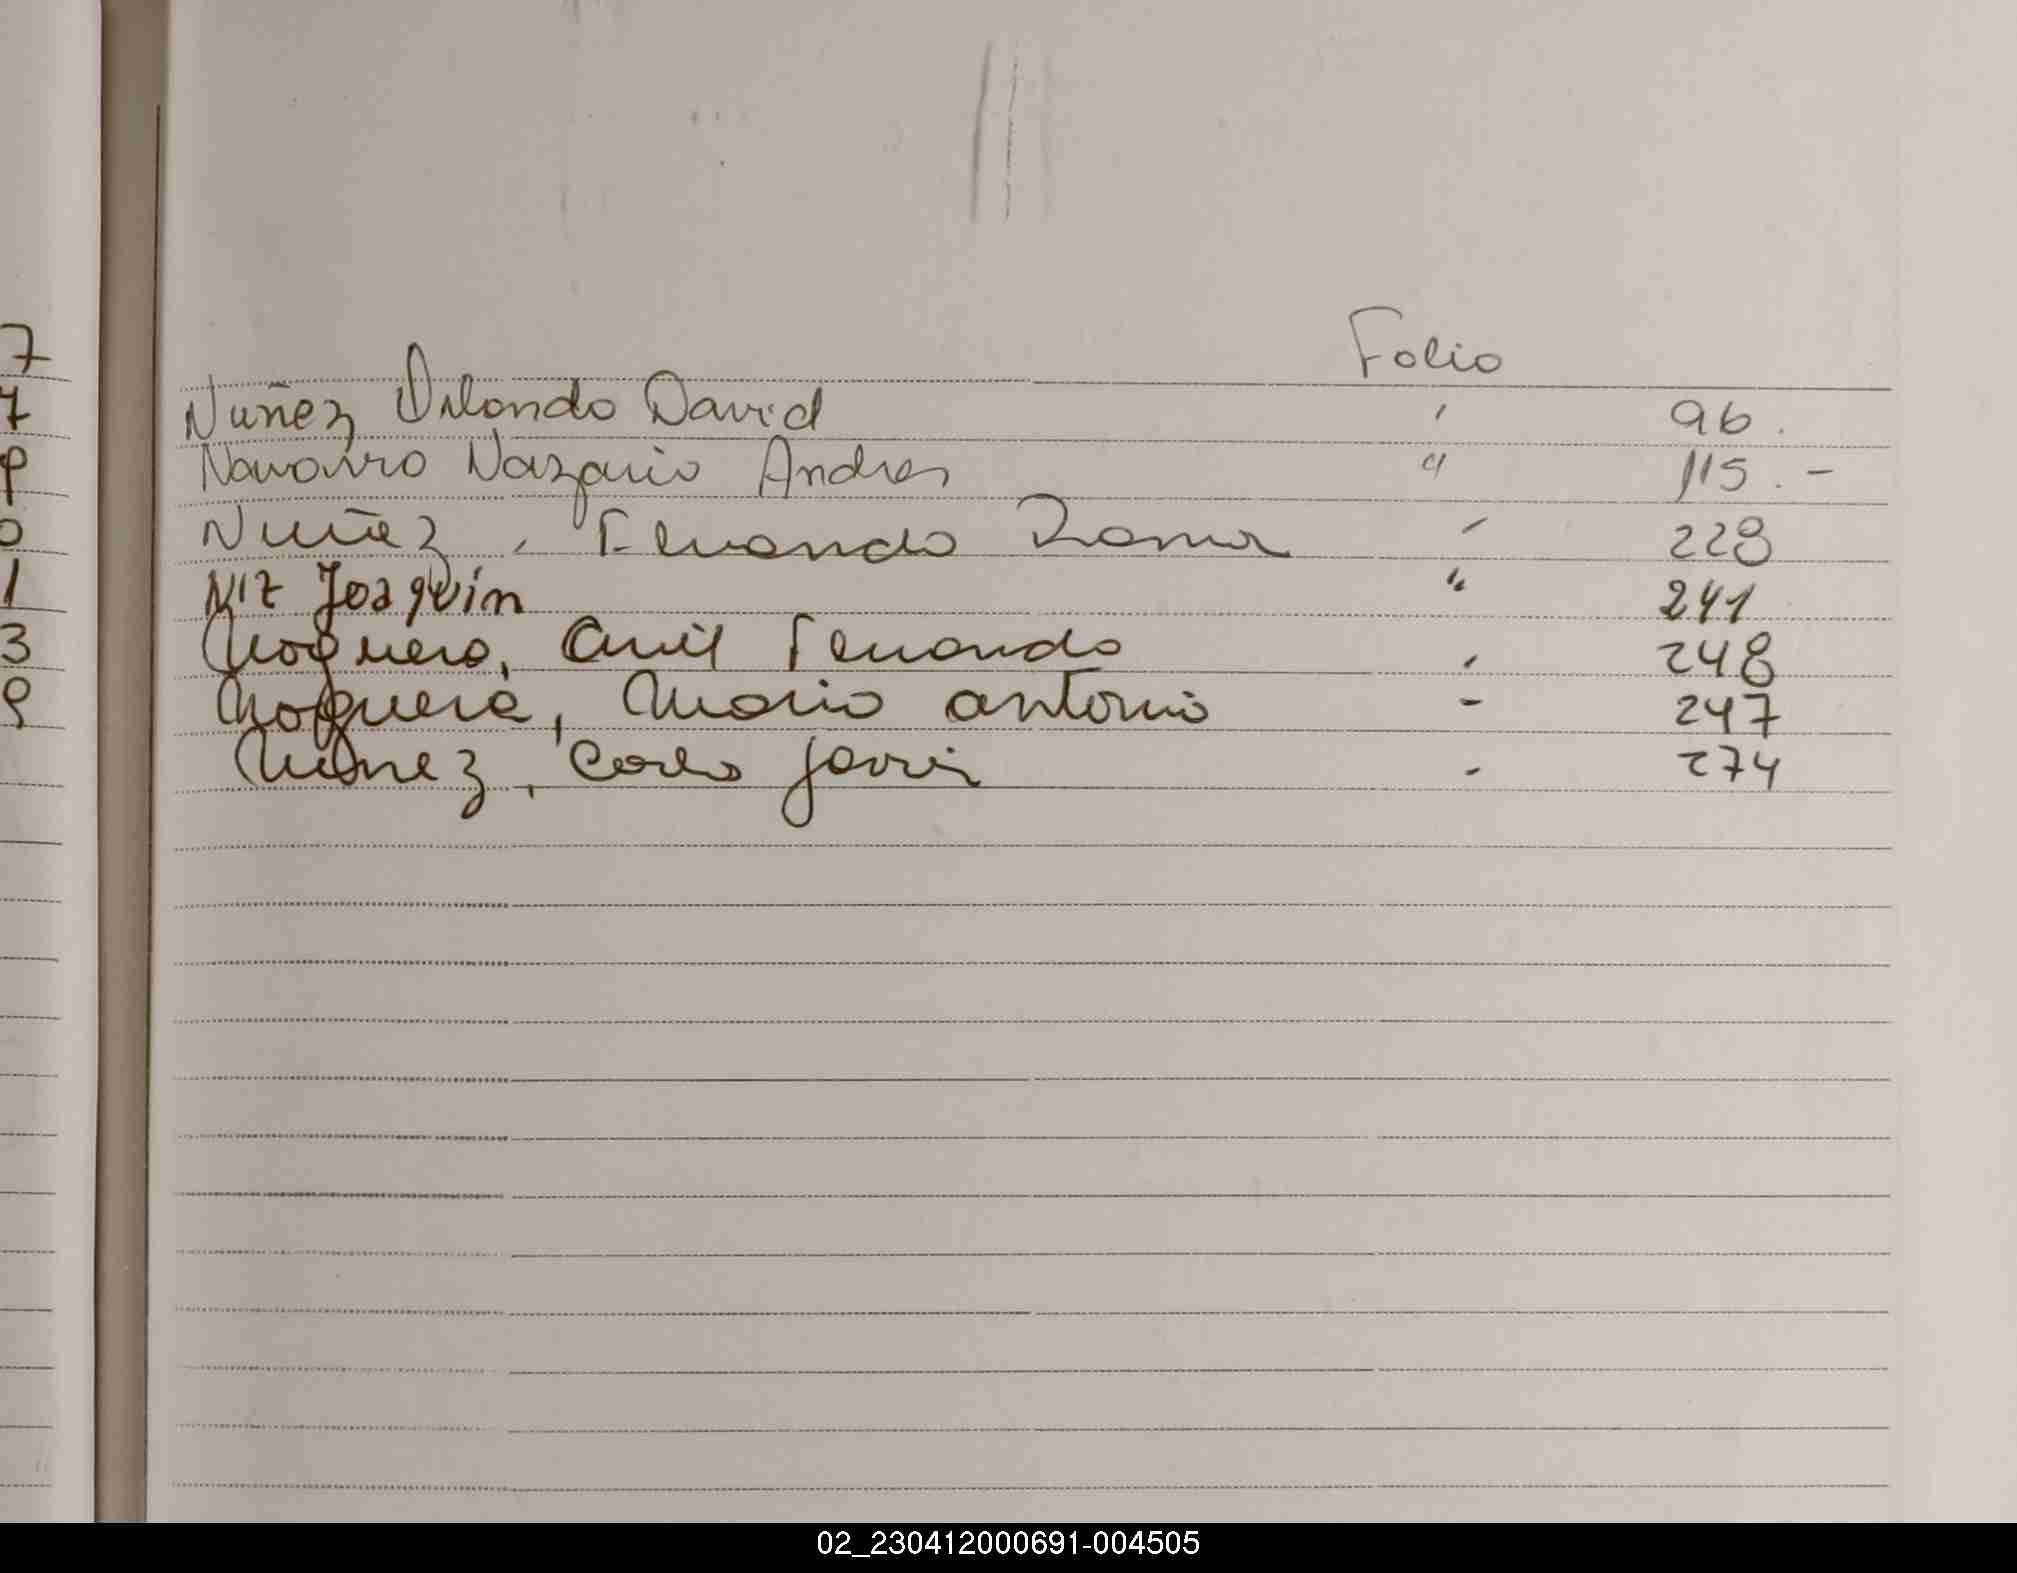 7
7
9
0
1
3
9
Folio
Nuñez Orlando David ' 96.
Navarro Nazario Andres " 115.-
Nuñez, Fernando Ramon - 228
Niz Joaquin " 241
Noguera, Fernando , 248
Noguera, Mario Antonio - 247
Nuñez, Carlos Javier - 274
02_230412000691-004505